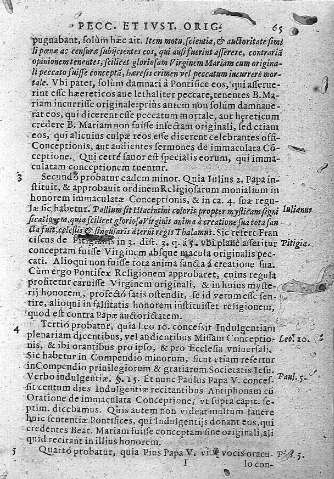 PECC. ET IVST. ORIG. 65
pugnabant, solùm hæc ait. Item motu, scientia, & auctoritate simi
li pœnæ ac censuræ subijcientes eos, qui ausi fuerint asserere, contrariã
opinionem tenentes, scilicet gloriosam Virginem Mariam cum origina-
li peccato fuisse conceptã, hæresis crimen vel peccatum incurrere mor-
tale. Vbi patet, solùm damnati à Pontifice eos, qui asserue-
rint esse hæreticos aut lethaliter peccare, tenentes B. Ma-
riam incurrisse originale: priùs autem non solùm damnaue-
rat eos, qui dicerent esse peccatum mortale, aut hæreticum
credere B. Mariam non fuisse infectam originali, sed etiam
eos, qui alicuius culpæ reos esse dicerent celebrantes offi-
Conceptionis, aut audientes sermones de immaculata Cõ-
ceptione. Qui certè fauor est specialis eorum, qui imma-
culatam conceptionem tuentur.
3 Secundò probatur eadem minor. Quia Iulius 2. Papa in-
stituit, & approbauit ordinem Religiosarum monialium in
honorem immaculatæ Conceptionis, & in ca. 4. suæ regu-
læ sic habetur. Pallium sit Hiacinthini coloris propter mysticam signi Iulianus
ficationem, quòd scilicet gloriosæ Virginis anima à creatione sua tota san
cta fuit, cælestis & singularis æterni regis Thalamus. Sic refert Fran
ciscus de Pitigianis in 3. dist. 3. q. 1. vbi planè asseritur Pitigia.
conceptam fuisse Virginem absque macula originalis pec-
cati. Alioqui non fuisset tota anima sancta à creatione sua.
Cùm ergo Pontifex Religionem approbaret, cuius regula
profitetur caruisse Virginem originali, & in huius myste-
rij honorem, profectò satis ostendit, se id verum esse sen-
tire, alioqui in falsitatis honorem instituisset religionem,
quod est contra Papæ auctoritatem.
4 Tertiò probatur, quia Leo 10. concessit Indulgentiam Leo 10.
plenariam dicentibus, vel audientibus Missam Conceptio-
nis, & ibi orantibus pro ipso, & pro Ecclesia vniuersali.
Sic habetur in Compendio minorum, sicut etiam refertur
in Compendio priuilegiorum & gratiarum Societatis Iesu.
Verbo indulgentiæ, §. 15. Et nunc Paulus Papa V. conces- Paul. 5.
sit centum dies Indulgentiæ recitantibus Antiphonam cũ
Oratione de immaculata Conceptione, vt supra capite se-
ptim. dicebamus. Quis autem non videat multum fauere
huic sententiæ Pontifices, qui Indulgentijs donant eos, qui
credentes Beat. Mariam fuisse conceptam sine originali, ali
quid recitant in illius honorem.
5 Quartò probatur, quia Pius Papa V. viuæ vocis oracu- Pius 5.
I lo con-